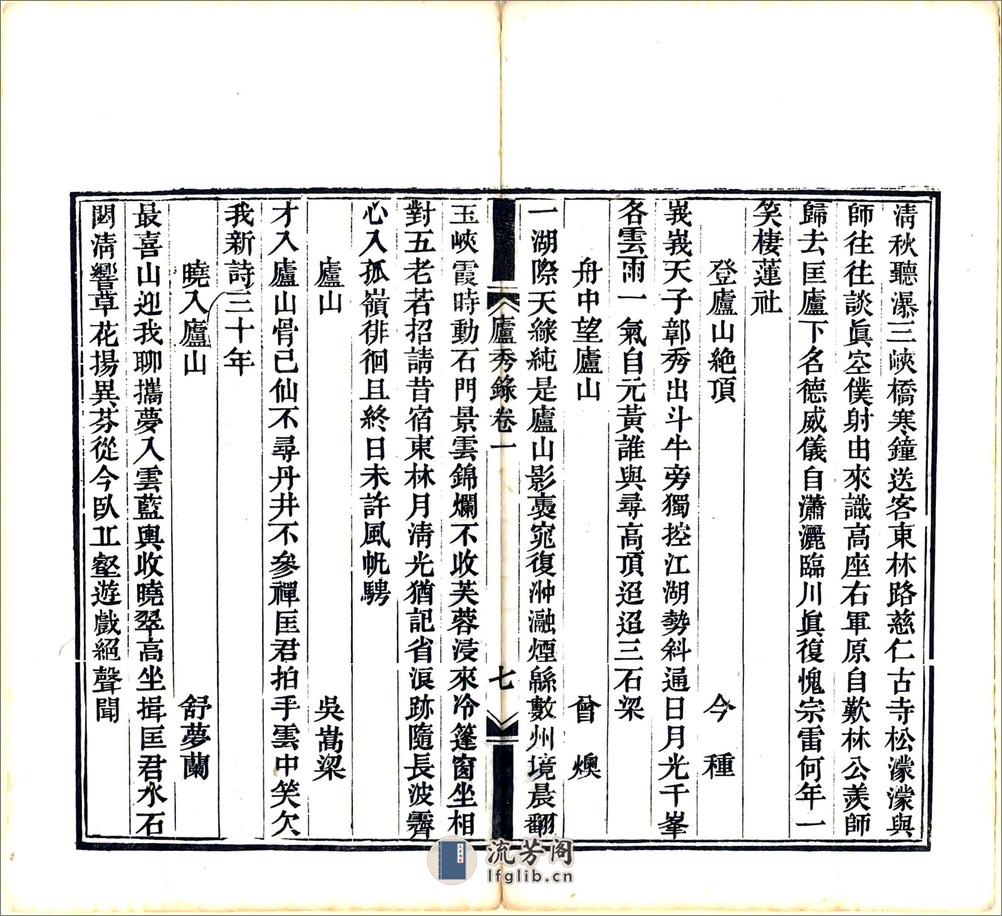 淸秋聽瀑三峽橋寒鐘送客東林路慈仁古寺松濛濛與
師往往談眞空僕射由來識高座右軍原自歎林公羨師
歸去匡廬下名德威儀自瀟灑臨川眞復愧宗雷何年一
笑棲蓮社
登廬山絕頂　今種
峩峩天子鄣秀出斗牛旁獨控江湖勢斜通日月光千峯
各雲雨一氣自元黃誰與尋高頂迢迢三石梁
舟中望廬山　曾燠
一湖際天綠純是廬山影裹窕復沖瀜煙緜數州境晨翻
廬秀錄卷一　七
玉峽霞時動石門景雲錦爛不收芙蓉浸來冷篷窗坐相
對五老若招請昔宿東林月淸光猶記省浪跡隨長波霽
心入孤嶺徘徊且終日未許風帆騁
廬山　吳嵩梁
才入廬山骨已仙不尋丹井不參禪匡君拍手雲中笑欠
我新詩三十年
曉入廬山　舒夢蘭
最喜山迎我聊攜夢入雲藍輿收曉翠高坐揖匡君水石
閟淸響草花揚異芬從今臥丠壑遊戲絕聲聞
流芳阁
lfglib.cn